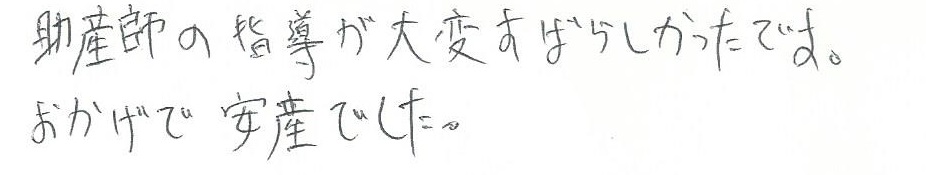 助産師の指導が大変すばらしかったです。
おかげで安産でした。